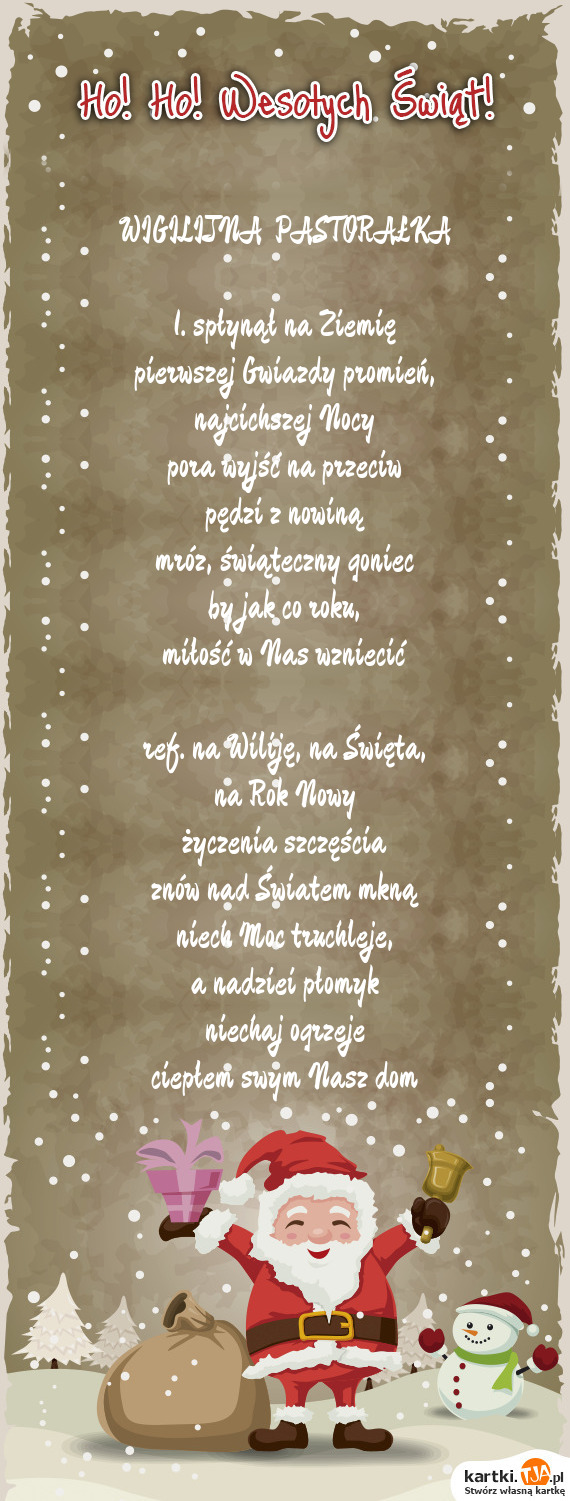 Ho! Ho! Wesołych Świąt!
WIGILIJNA PASTORAŁKA
1. spłynął na Ziemię
pierwszej Gwiazdy promień,
najcichszej Nocy
pora wyjść na przeciw
pędzi z nowiną
mróz, świąteczny goniec
by jak co roku,
miłość w Nas wzniecić
ref. na Wiliję, na Święta,
na Rok Nowy
życzenia szczęścia
znów nad Światem mkną
niech Moc truchleje,
a nadziei płomyk
niechaj ogrzeje
ciepłem swym Nasz dom
kartki.TJA.pl
Stwórz własną kartkę